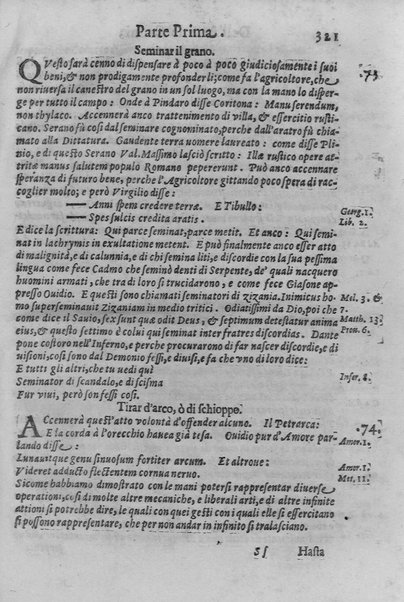 Parte Prima. 321
Seminar il grano.
QVesto sarà cenno di dispensare à poco à poco giudiciosamente i suoi 73
beni, & non prodigamente profonderli; come fa l'agricoltore, che
non riuersa il canestro del grano in un sol luogo, ma con la mano lo disper-
ge per tutto il campo: Onde à Pindaro disse Coritona: Manu serendum,
non thylaco. Accennerà anco trattenimento di villa, & essercitio rusti-
cano. Serano fù così dal seminare cognominato, perche dall'aratro fù chia-
mato alla Dittatura. Gaudente terra uomere laureato: come disse Pli-
nio, e di questo Serano Val. Massimo lasciò scritto: Illæ rustico opere at-
tritæ manus salutem populo Romano pepererunt. Può anco accennare
speranza di futuro bene, perche l'Agricoltore gittando poco spera di rac-
coglier molto; e però Virgilio disse:
—— Anni spem credere terræ. E Tibullo: Georg. 1.
—— Spes sulcis credita aratis. Lib. 2.
E dice la scrittura: Qui parce seminat, parce metit. Et anco: Qui semi-
nat in lachrymis in exultatione metent. E può finalmente anco esser atto
di malignità, e di calunnia, e di chi semina liti, e discordie con la sua pessima
lingua come fece Cadmo che seminò denti di Serpente, de' quali nacquero
huomini armati, che tra di loro si trucidarono, e come fece Giasone ap-
presso Ouidio. E questi sono chiamati seminatori di zizania. Inimicus ho- Met. 3. & 7.
mo superseminauit Zizaniam in medio tritici. Odiatissimi da Dio, poi che
come dice il Sauio, sex sunt quæ odit Deus, & septimum detestatur anima Matth. 13.
eius, & questo settimo è colui qui seminat inter fratres discordias. Dante Prou. 6.
pone costoro nell'Inferno, e perche procurarono di far nascer discordie, e di
uisioni, così sono dal Demonio fessi, e diuisi, e fa che vno di loro dice:
E tutti gli altri, che tu uedi quì Infer. 8.
Seminator di scandalo, e di scisma
Fur viui, però son fessi così.
Tirar d'arco, ò di schioppo.
ACcennerà quest'atto volontà d'offender alcuno. Il Petrarca: 74.
E la corda à l'orecchio hauea già tesa. Ouidio pur d'Amore par- Amor. 1.
lando disse:
Lunauitque genu sinuosum fortiter arcum. Et altroue: Amor. 1.
Videret adducto flectentem cornua neruo. Met. 11.
Sicome habbiamo dimostrato con le mani potersi rappresentar diuerse
operationi, così di molte altre mecaniche, e liberali arti, e di altre infinite
attioni si potrebbe dire, le quali con quei gesti con i quali elle si essercitano
si possono rappresentare, che per non andar in infinito si tralasciano.
Sſ Hasta